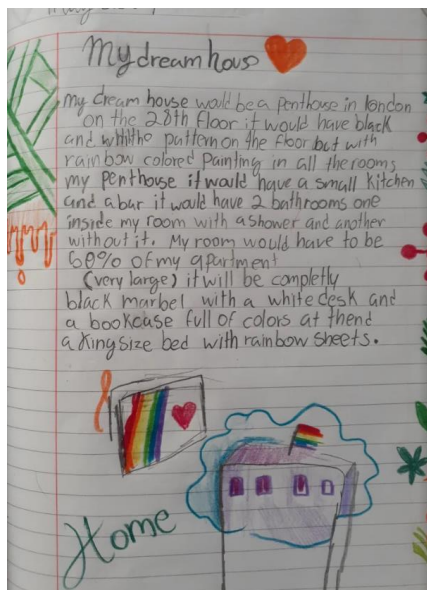 My dream hous
my dream house would be a penthouse in london
on the 28th floor it would have black
and whithe pattern on the floor but with
rainbow colored painting in all the rooms
my penthouse it would have a small kitchen
and a bar it would have 2 bathrooms one
inside my room with a shower and another
without it. My room would have to be
60% of my apartment
(very large) it will be completly
black marbel with a white desk and
a bookcase full of colors at thend
a King size bed with rainbow sheets.
Home